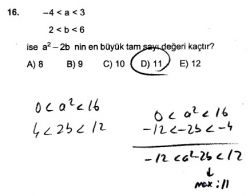 16. −4 < a < 3
2 < b < 6
ise a² − 2b nin en büyük tam sayı değeri kaçtır?
A) 8 B) 9 C) 10 D) 11 E) 12
0 < a² < 16
4 < 2b < 12
0 < a² < 16
-12 < -2b < -4
-12 < a² - 2b < 12
↓
max: 11